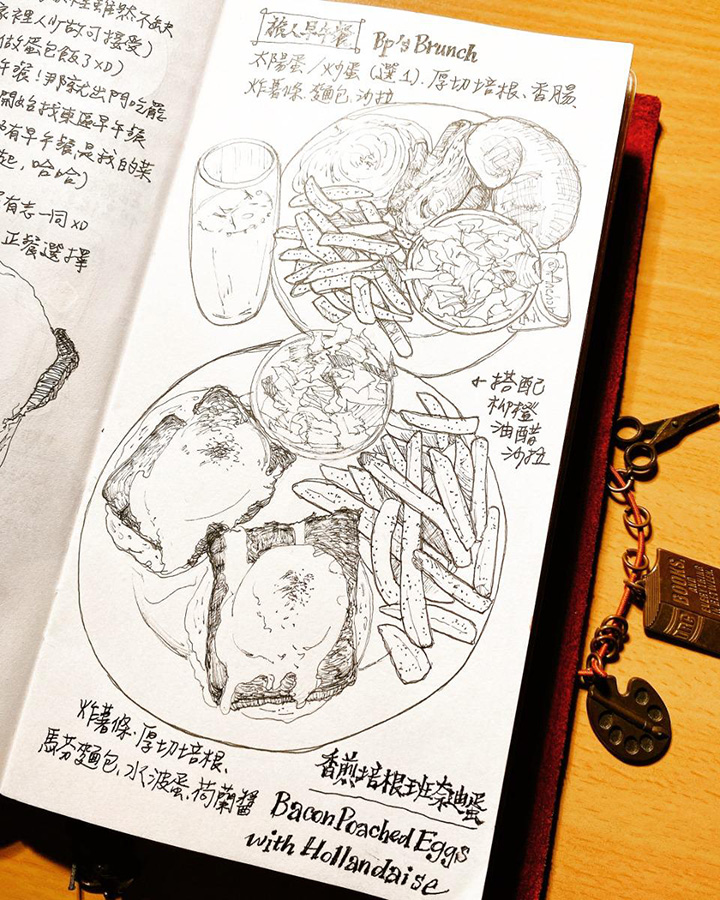 雖然不缺
家裡人少做可接受)
做蛋包飯了XD)
午餐!那就出門吃罷
開始找東區早午餐
有早午餐,是我的菜
起,哈哈)
有志一同XD
正餐選擇
旅人早午餐 Bp's Brunch
太陽蛋/炒蛋(選1)、厚切培根、香腸、
炸薯條、麵包、沙拉
←搭配
柳橙
油醋
沙拉
炸薯條、厚切培根、
馬芬麵包、水波蛋、荷蘭醬
香煎培根班奈迪蛋
Bacon Poached Eggs
with Hollandaise
BOOKS